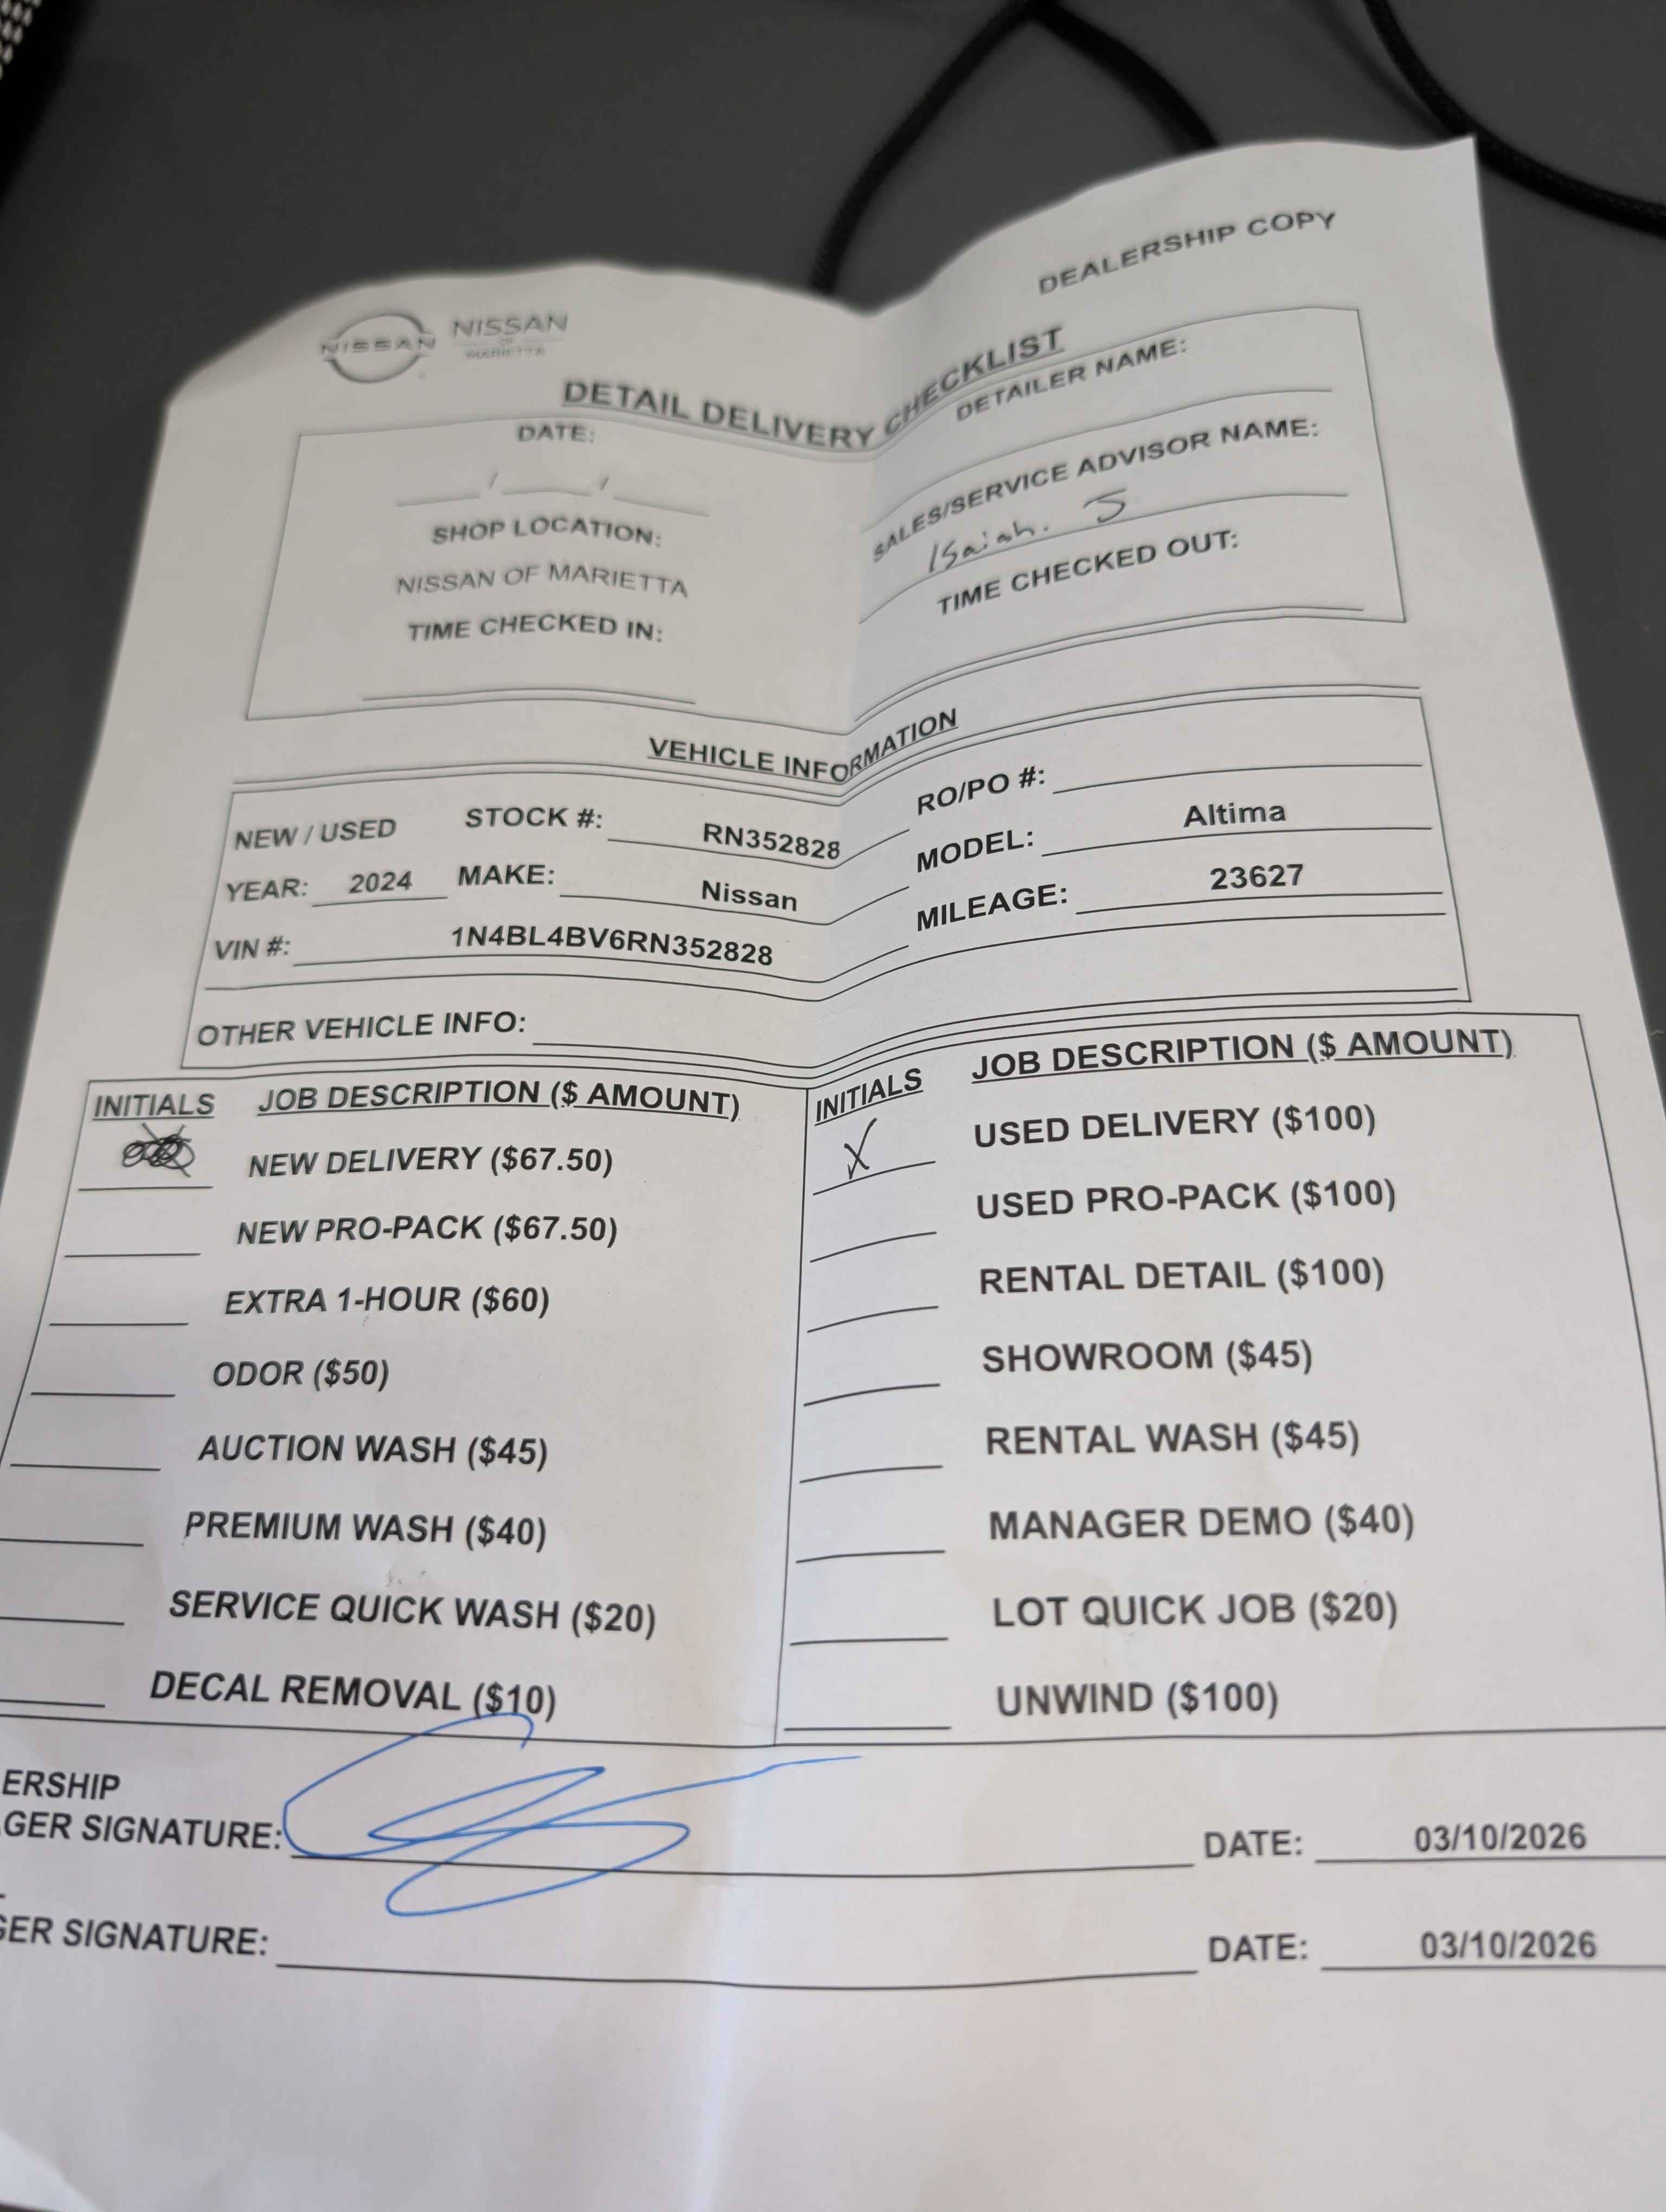 DEALERSHIP COPY
NISSAN NISSAN
OF
MARIETTA
DETAIL DELIVERY CHECKLIST
DATE:
/ /
SHOP LOCATION:
NISSAN OF MARIETTA
TIME CHECKED IN:
DETAILER NAME:
SALES/SERVICE ADVISOR NAME:
Isaiah. J
TIME CHECKED OUT:
VEHICLE INFORMATION
NEW / USED STOCK #: RN352828 RO/PO #:
YEAR: 2024 MAKE: Nissan MODEL: Altima
VIN #: 1N4BL4BV6RN352828 MILEAGE: 23627
OTHER VEHICLE INFO:
INITIALS JOB DESCRIPTION ($ AMOUNT)
NEW DELIVERY ($67.50)
NEW PRO-PACK ($67.50)
EXTRA 1-HOUR ($60)
ODOR ($50)
AUCTION WASH ($45)
PREMIUM WASH ($40)
SERVICE QUICK WASH ($20)
DECAL REMOVAL ($10)
INITIALS JOB DESCRIPTION ($ AMOUNT)
X USED DELIVERY ($100)
USED PRO-PACK ($100)
RENTAL DETAIL ($100)
SHOWROOM ($45)
RENTAL WASH ($45)
MANAGER DEMO ($40)
LOT QUICK JOB ($20)
UNWIND ($100)
ERSHIP
GER SIGNATURE: DATE: 03/10/2026
GER SIGNATURE: DATE: 03/10/2026